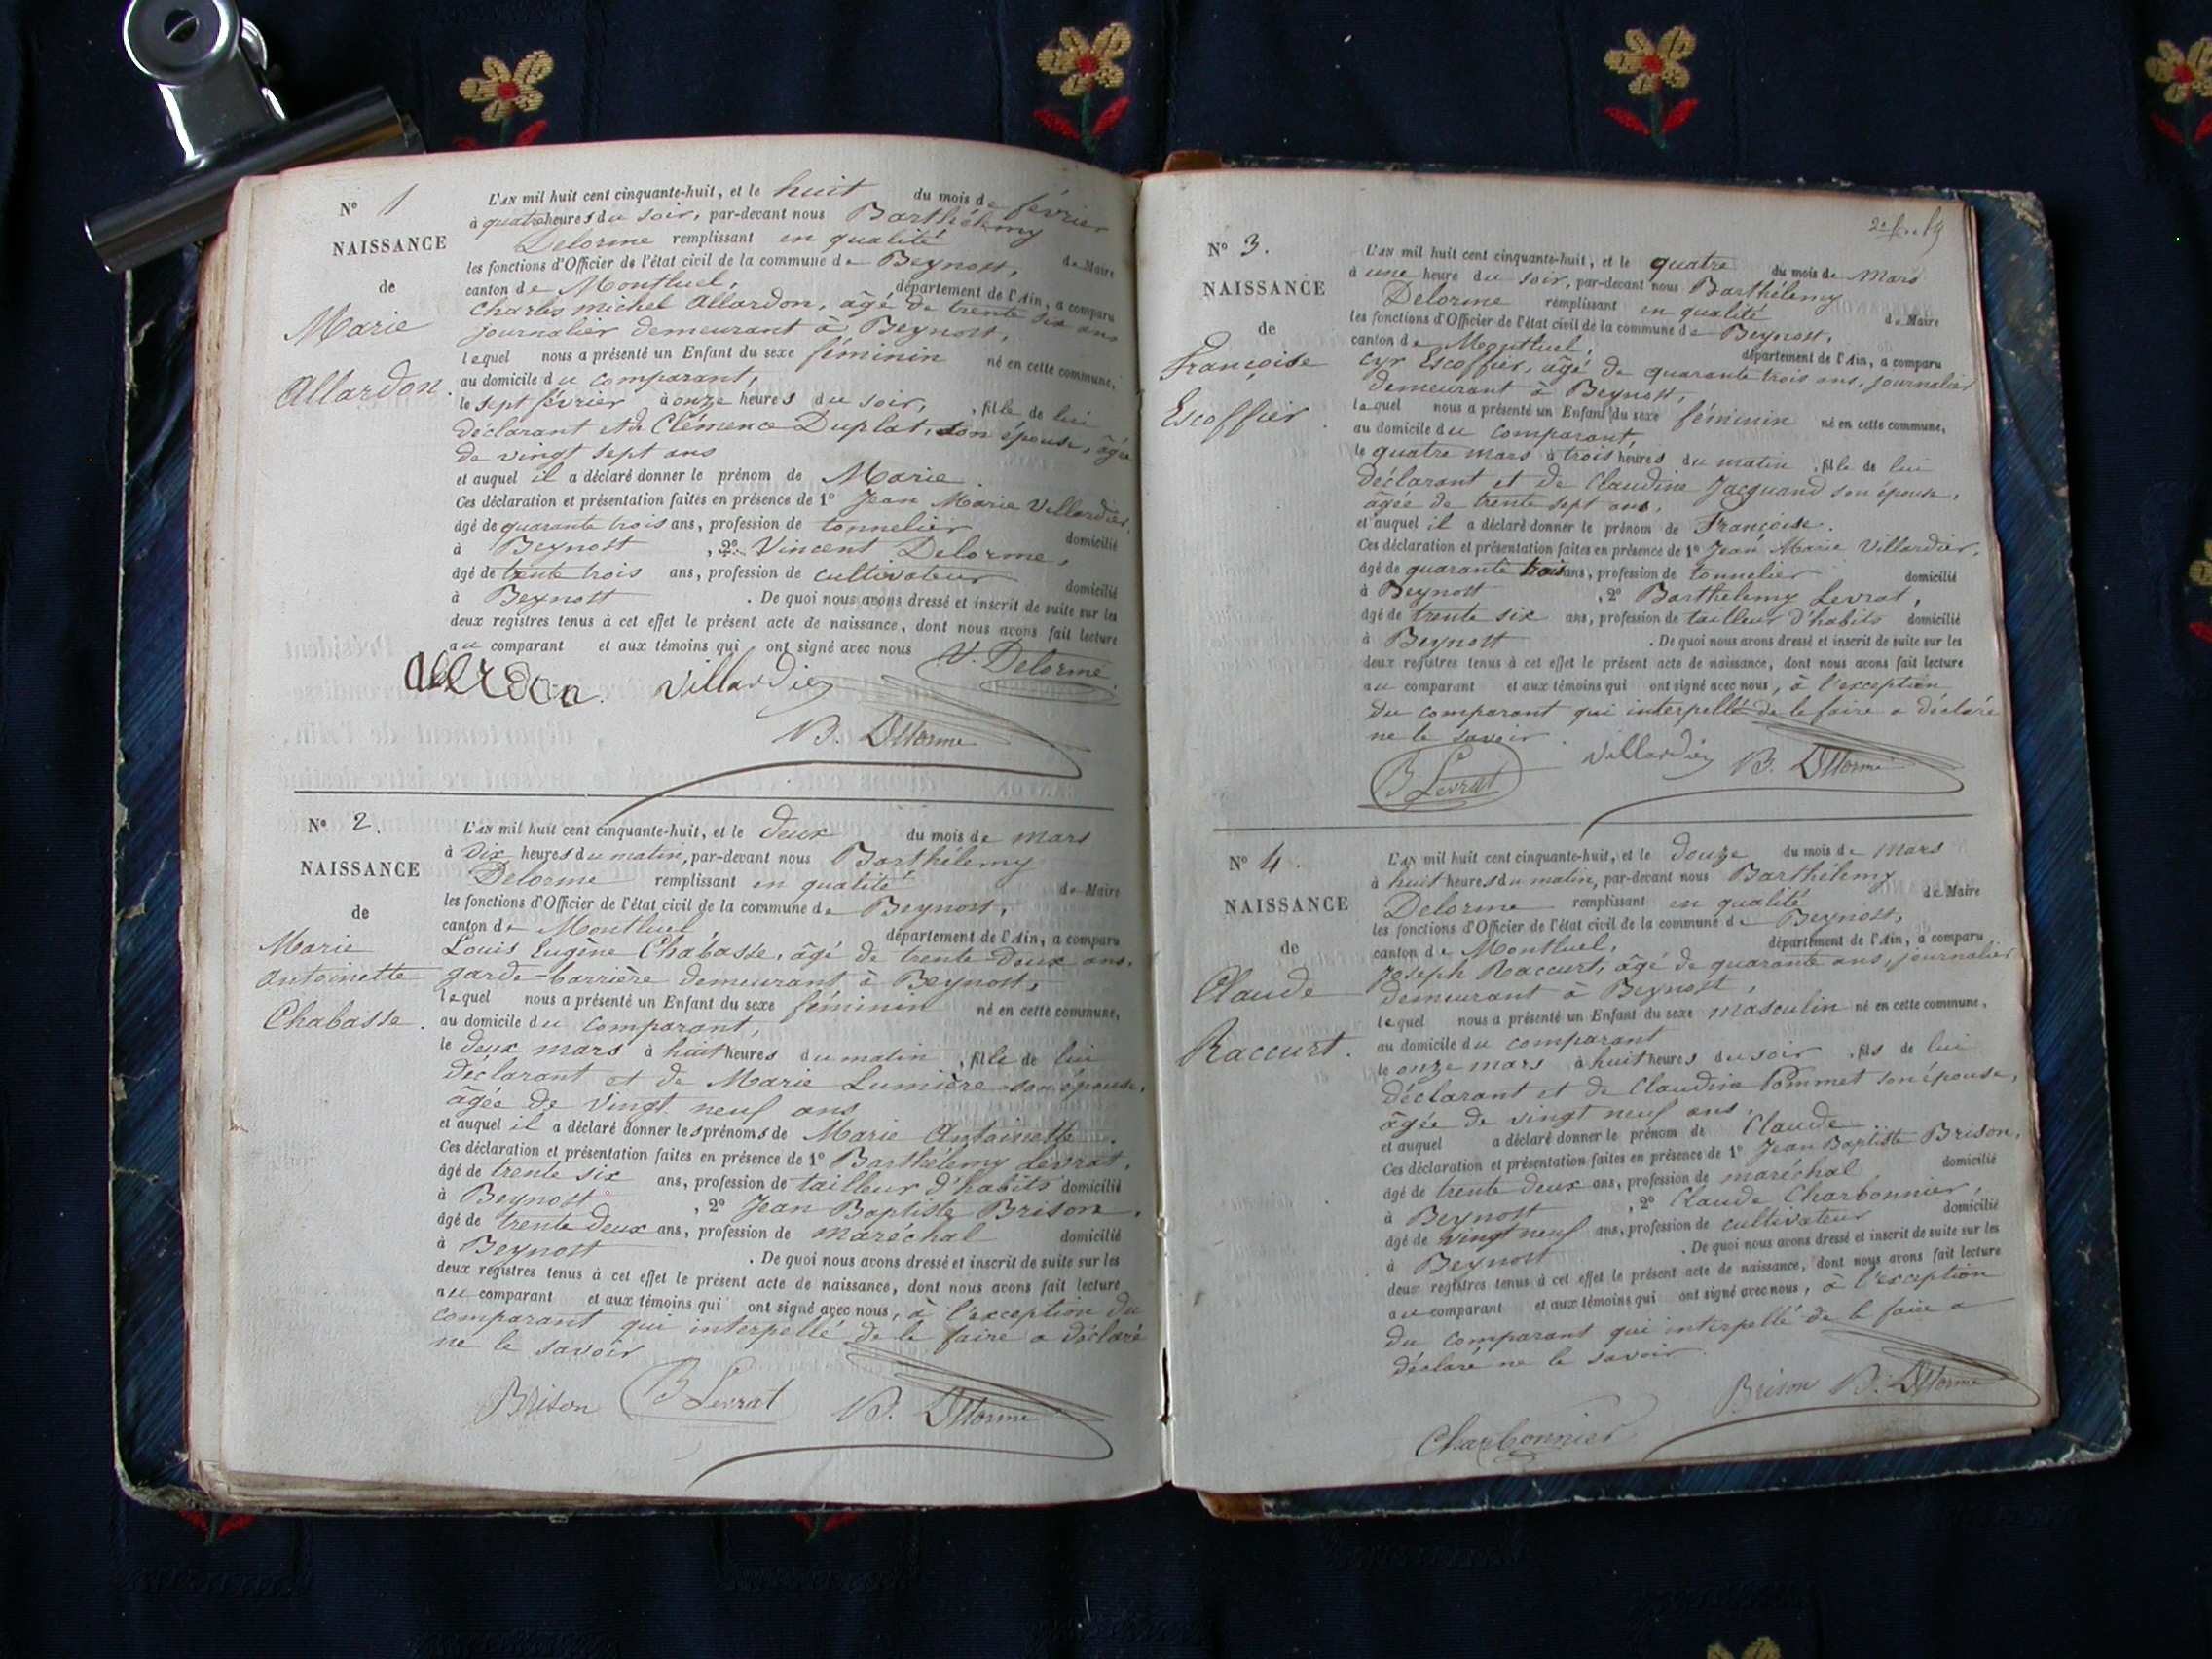 N° 1
NAISSANCE
de
Marie
Allardon.
L'AN mil huit cent cinquante-huit, et le huit du mois de février
à quatre heures du soir, par-devant nous Barthélemy
Delorme remplissant en qualité de Maire
les fonctions d'Officier de l'état civil de la commune de Beynost,
canton de Montluel, département de l'Ain, a comparu
Charles michel Allardon, âgé de trente six ans
journalier demeurant à Beynost,
lequel nous a présenté un Enfant du sexe féminin né en cette commune,
au domicile du comparant,
le sept février à onze heures du soir, fille de lui
déclarant et de Clémence Duplat, son épouse, âgée
de vingt sept ans
et auquel il a déclaré donner le prénom de Marie.
Ces déclaration et présentation faites en présence de 1° Jean Marie Villardier,
âgé de quarante trois ans, profession de tonnelier domicilié
à Beynost, 2° Vincent Delorme,
âgé de trente trois ans, profession de cultivateur domicilié
à Beynost. De quoi nous avons dressé et inscrit de suite sur les
deux registres tenus à cet effet le présent acte de naissance, dont nous avons fait lecture
au comparant et aux témoins qui ont signé avec nous
allrdon. Villardier V. Delorme
B. Delorme
N° 2.
NAISSANCE
de
Marie
Antoinette
Chabasse.
L'AN mil huit cent cinquante-huit, et le deux du mois de mars
à dix heures du matin, par-devant nous Barthélemy
Delorme remplissant en qualité de Maire
les fonctions d'Officier de l'état civil de la commune de Beynost,
canton de Montluel département de l'Ain, a comparu
Louis Eugène Chabasse, âgé de trente deux ans,
garde-barrière demeurant à Beynost,
lequel nous a présenté un Enfant du sexe féminin né en cette commune,
au domicile du comparant,
le deux mars à huit heures du matin, fille de lui
déclarant et de Marie Lumière son épouse,
âgée de vingt neuf ans
et auquel il a déclaré donner les prénoms de Marie Antoinette.
Ces déclaration et présentation faites en présence de 1° Barthélemy Levrat,
âgé de trente six ans, profession de tailleur d'habits domicilié
à Beynost, 2° Jean Baptiste Brison,
âgé de trente deux ans, profession de maréchal domicilié
à Beynost. De quoi nous avons dressé et inscrit de suite sur les
deux registres tenus à cet effet le présent acte de naissance, dont nous avons fait lecture
au comparant et aux témoins qui ont signé avec nous, à l'exception du
comparant qui interpellé de le faire a déclaré
ne le savoir
Brison B Levrat B. Delorme
N° 3.
NAISSANCE
de
Françoise
Escoffier.
L'AN mil huit cent cinquante-huit, et le quatre du mois de Mars
à une heure du soir, par-devant nous Barthélemy
Delorme remplissant en qualité de Maire
les fonctions d'Officier de l'état civil de la commune de Beynost,
canton de Montluel, département de l'Ain, a comparu
Cyr Escoffier, âgé de quarante trois ans, journalier
demeurant à Beynost,
lequel nous a présenté un Enfant du sexe féminin né en cette commune,
au domicile du comparant,
le quatre mars à trois heures du matin, fille de lui
déclarant et de Claudine Jacquand son épouse,
âgée de trente sept ans,
et auquel il a déclaré donner le prénom de Françoise.
Ces déclaration et présentation faites en présence de 1° Jean Marie Villardier,
âgé de quarante trois ans, profession de tonnelier domicilié
à Beynost, 2° Barthélemy Levrat,
âgé de trente six ans, profession de tailleur d'habits domicilié
à Beynost. De quoi nous avons dressé et inscrit de suite sur les
deux registres tenus à cet effet le présent acte de naissance, dont nous avons fait lecture
au comparant et aux témoins qui ont signé avec nous, à l'exception
du comparant qui interpellé de le faire a déclaré
ne le savoir.
B Levrat Villardier B. Delorme
N° 4.
NAISSANCE
de
Claude
Raccurt.
L'AN mil huit cent cinquante-huit, et le douze du mois de mars
à huit heures du matin, par-devant nous Barthélemy
Delorme remplissant en qualité de Maire
les fonctions d'Officier de l'état civil de la commune de Beynost,
canton de Montluel, département de l'Ain, a comparu
Joseph Raccurt, âgé de quarante ans, journalier
demeurant à Beynost,
lequel nous a présenté un Enfant du sexe masculin né en cette commune,
au domicile du comparant
le onze mars à huit heures du soir, fils de lui
déclarant et de Claudine Pommet son épouse,
âgée de vingt neuf ans,
et auquel a déclaré donner le prénom de Claude.
Ces déclaration et présentation faites en présence de 1° Jean Baptiste Brison,
âgé de trente deux ans, profession de maréchal domicilié
à Beynost, 2° Claude Charbonnier,
âgé de vingt neuf ans, profession de cultivateur domicilié
à Beynost. De quoi nous avons dressé et inscrit de suite sur les
deux registres tenus à cet effet le présent acte de naissance, dont nous avons fait lecture
au comparant et aux témoins qui ont signé avec nous, à l'exception
du comparant qui interpellé de le faire a
déclaré ne le savoir.
Brison B. Delorme
Charbonnier